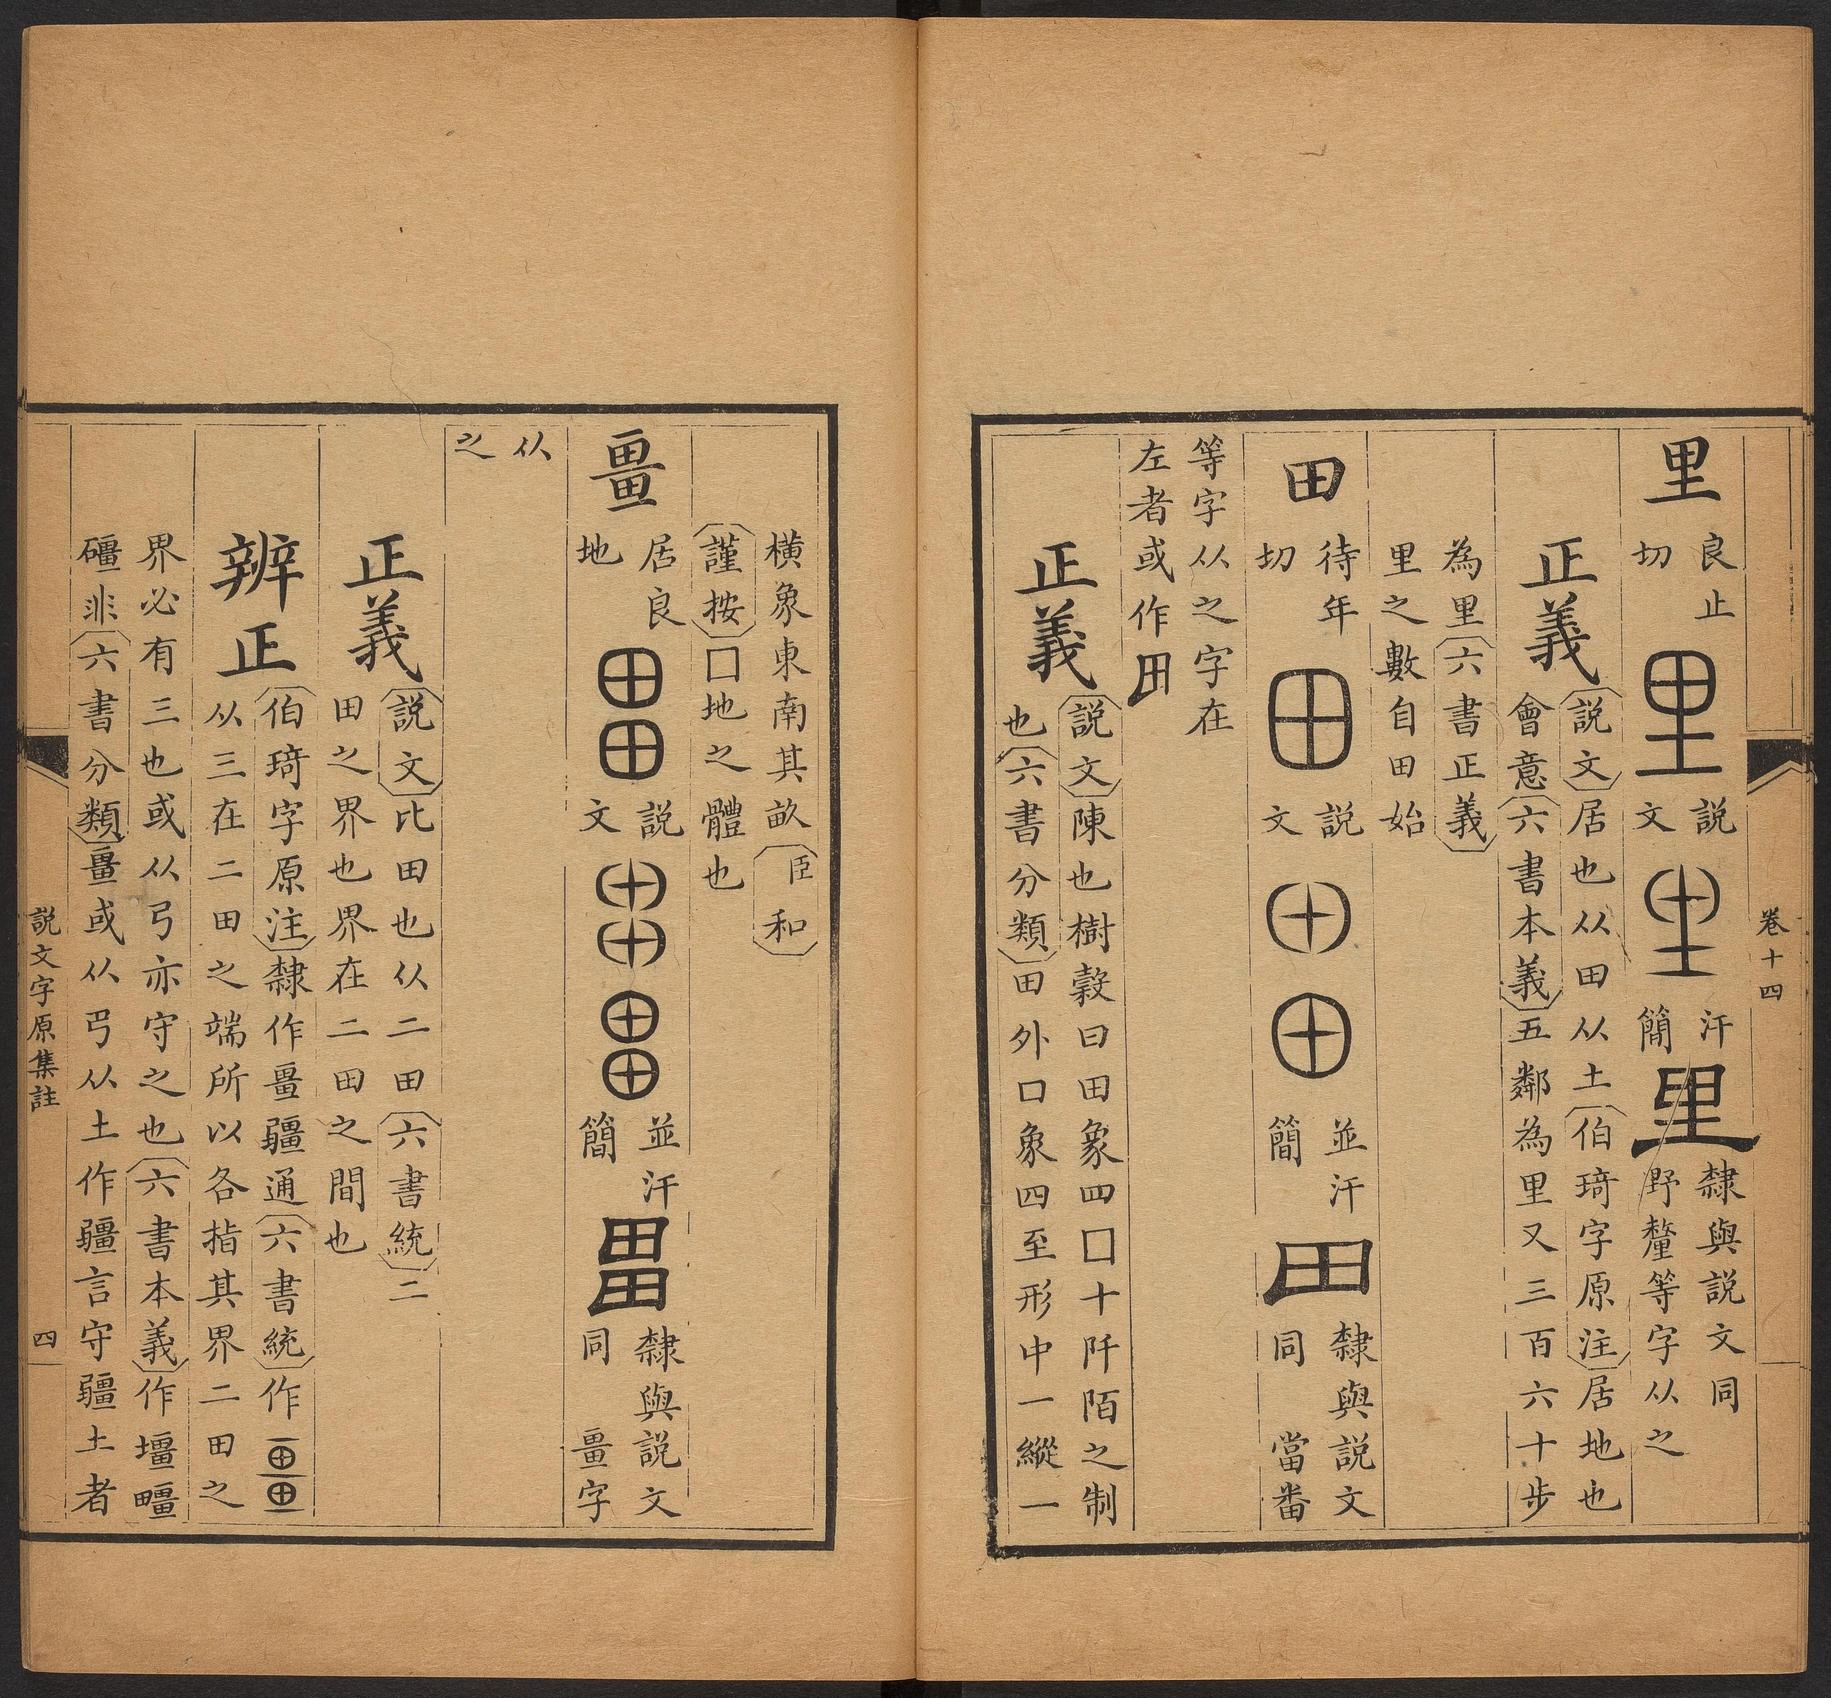 卷十四
里
良止
切
里
説
文
里
汗
簡
里
隸與説文同
野釐等字从之
正義
説文居也从田从土伯琦字原注居地也
會意六書本義五鄰為里又三百六十步
為里六書正義
里之數自田始
田
待年
切
田
説
文
田
田
並汗
簡
田
隸與説文
同 當畨
等字从之字在
左者或作田
正義
説文陳也樹穀曰田象四囗十阡陌之制
也六書分類田外口象四至形中一縱一
橫象東南其畝臣和
謹按囗地之體也
畺
居良
地
畕
説
文
畕
畕
並汗
簡
畕
隸與説文
同 畺字
从
之
正義
説文比田也从二田六書統二
田之界也界在二田之間也
辨正
伯琦字原注隸作畺疆通六書統作畺
从三在二田之端所以各指其界二田之
界必有三也或从弓亦守之也六書本義作壃疅
礓非六書分類畺或从弓从土作疆言守疆土者
説文字原集註
四